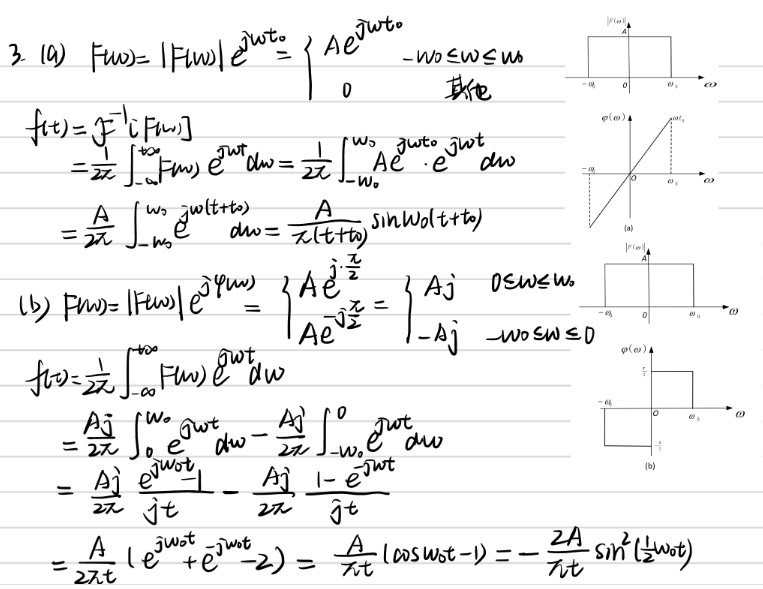 3. (a) F(ω) = |F(ω)| e^{jωt₀} = { Ae^{jωt₀} -ω₀ ≤ ω ≤ ω₀
0 其他
f(t) = F⁻¹[F(ω)]
= 1/2π ∫_{-∞}^{+∞} F(ω) e^{jωt} dω = 1/2π ∫_{-ω₀}^{ω₀} Ae^{jωt₀} · e^{jωt} dω
= A/2π ∫_{-ω₀}^{ω₀} e^{jω(t+t₀)} dω = A/π(t+t₀) sinω₀(t+t₀)
(b) F(ω) = |F(ω)| e^{jφ(ω)} = { Ae^{j·π/2} = { Aj 0 ≤ ω ≤ ω₀
Ae^{-jπ/2} -Aj -ω₀ ≤ ω ≤ 0
f(t) = 1/2π ∫_{-∞}^{+∞} F(ω) e^{jωt} dω
= Aj/2π ∫_0^{ω₀} e^{jωt} dω - Aj/2π ∫_{-ω₀}^0 e^{jωt} dω
= Aj/2π (e^{jω₀t} - 1)/jt - Aj/2π (1 - e^{-jωt})/jt
= A/2πt (e^{jω₀t} + e^{-jω₀t} - 2) = A/πt (cosω₀t - 1) = - 2A/πt sin²(½ω₀t)
|F(ω)|
A
-ω₀ 0 ω₀ ω
φ(ω)
ωt₀
-ω₀ O ω₀ ω
(a)
|F(ω)|
A
-ω₀ 0 ω₀ ω
φ(ω)
π/2
-ω₀ O ω₀ ω
-π/2
(b)